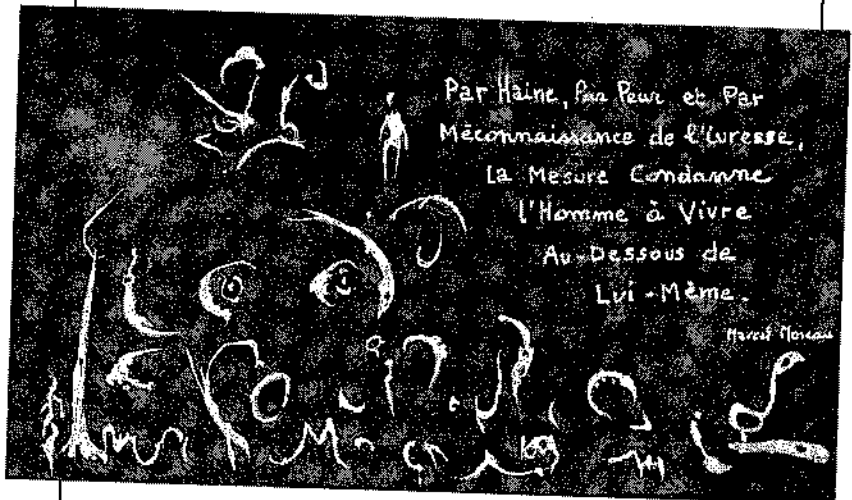 Par Haine, Par Peur et Par
Méconnaissance de l'Ivresse,
La Mesure Condamne
l'Homme à Vivre
Au-Dessous de
Lui-Même.
Marcel Moreau